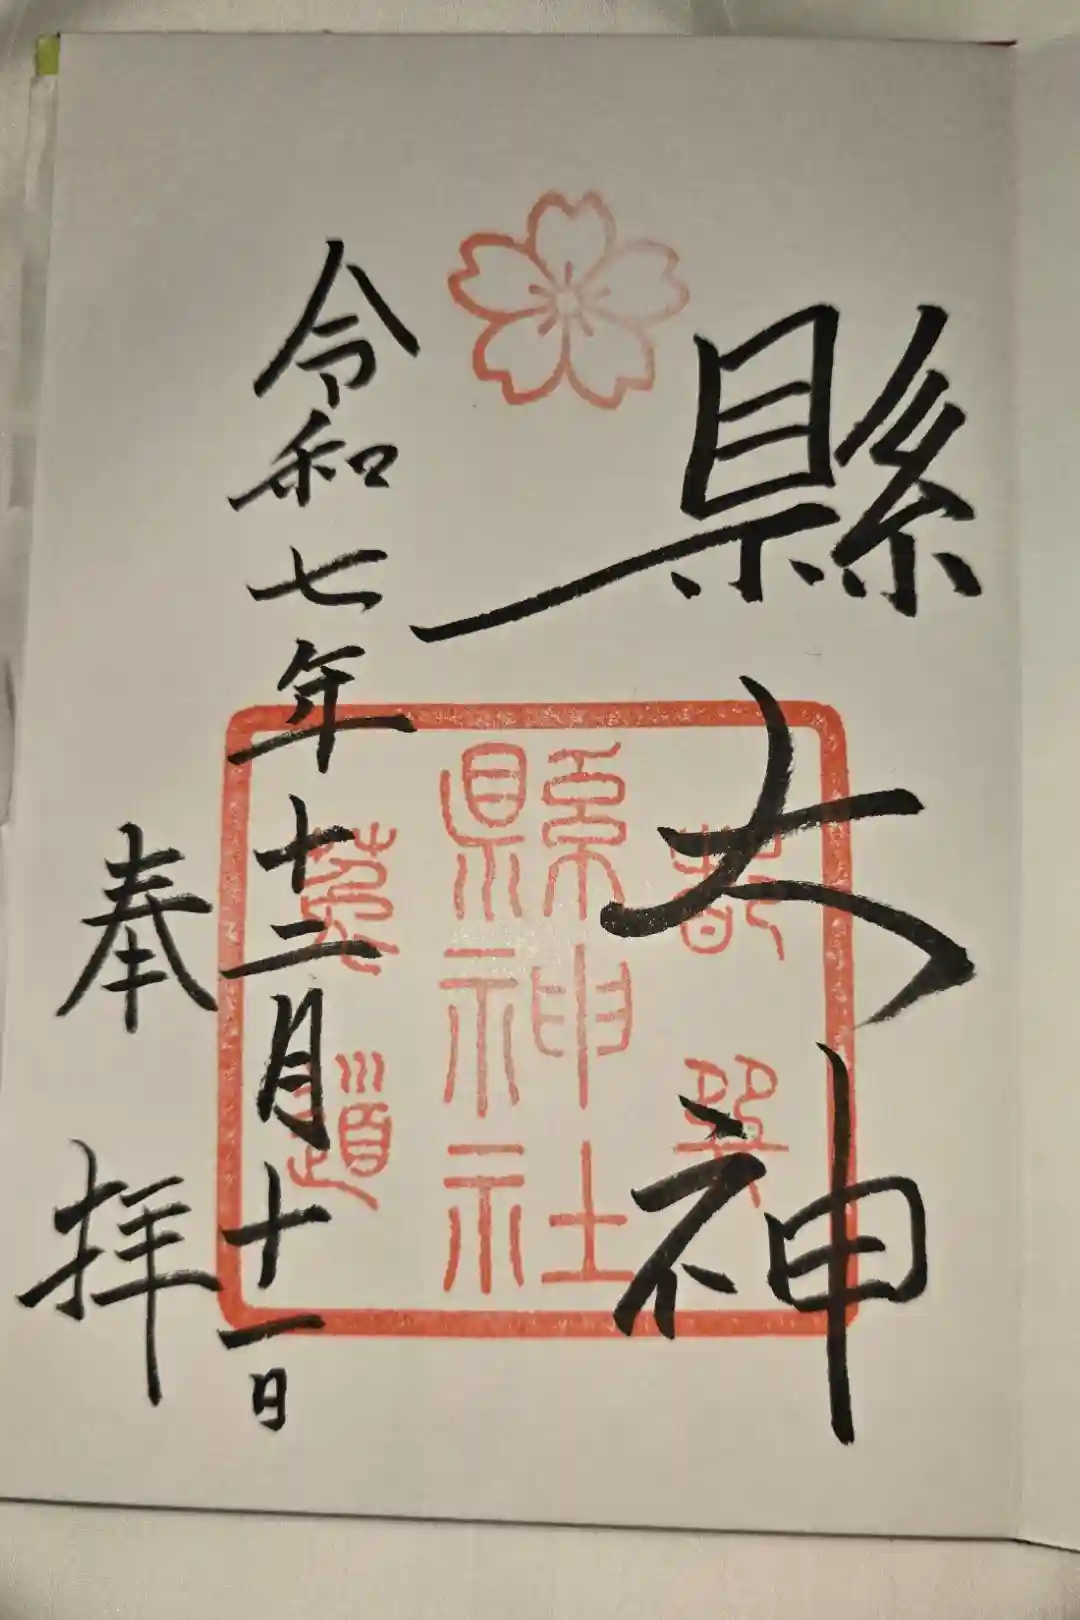 縣大神
令和七年十二月十一日
奉拝
都巽
縣神社
菟道